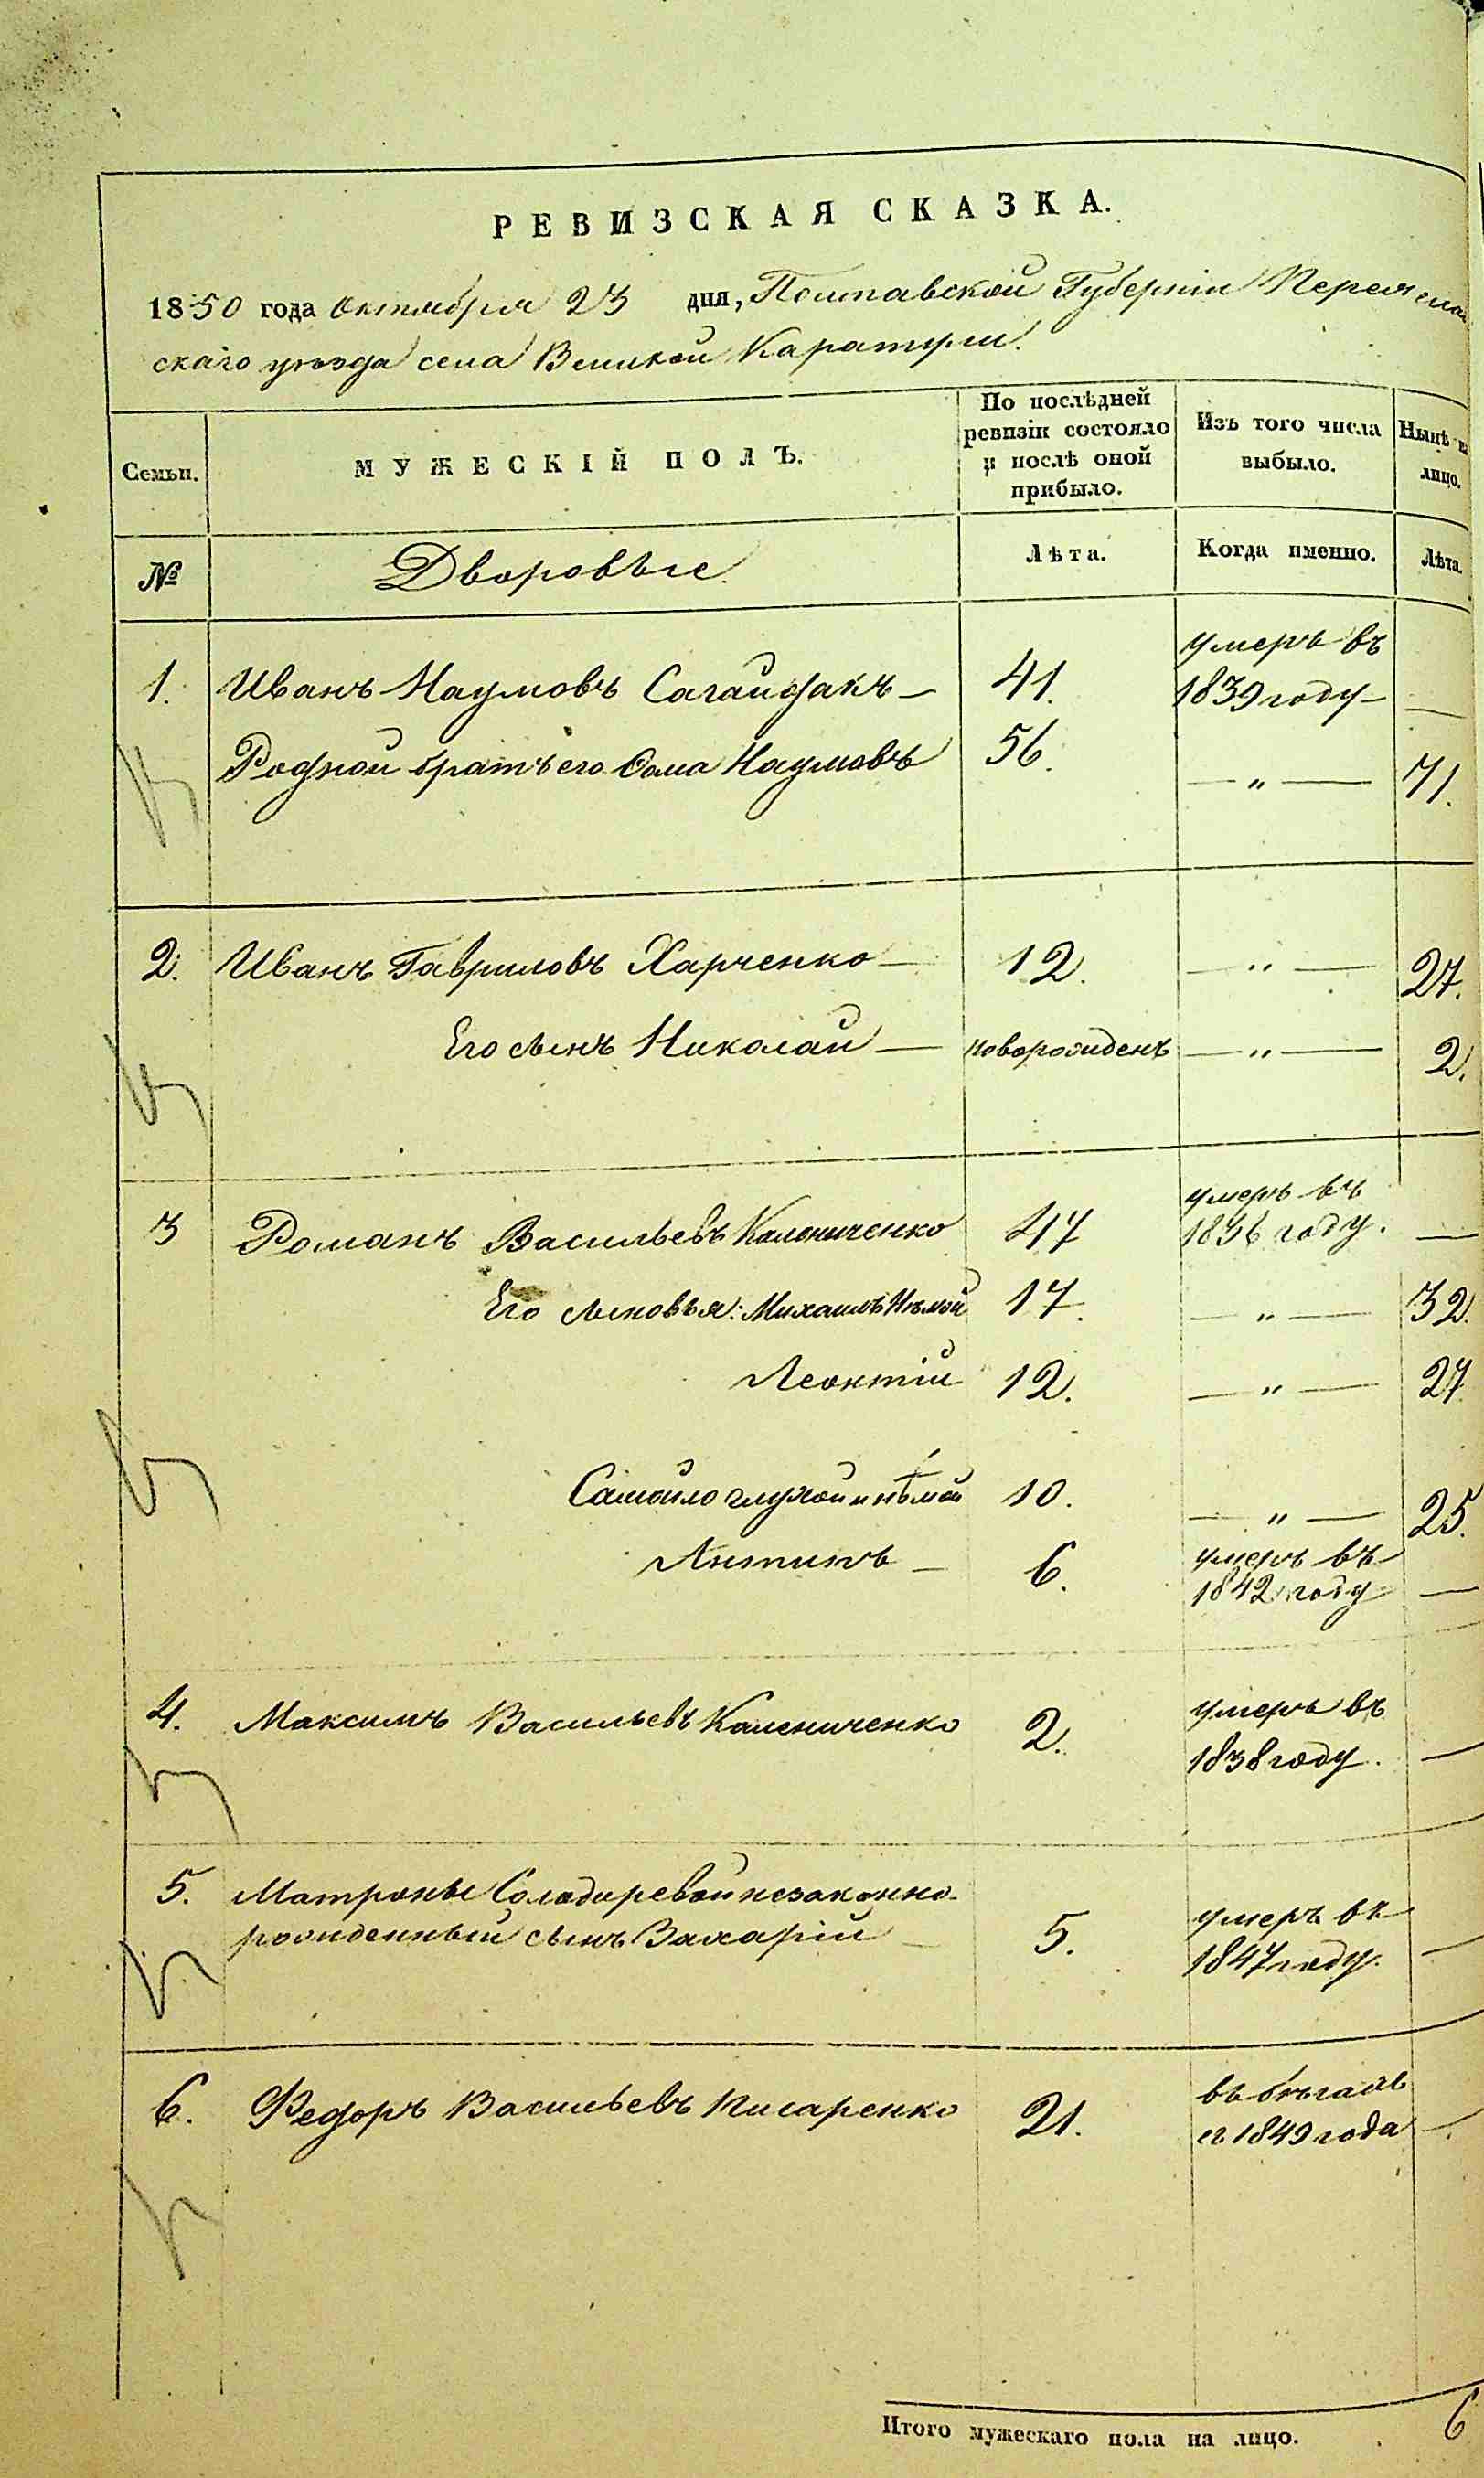 РЕВИЗСКАЯ СКАЗКА.
1850 года Октября 23 дня, Полтавской Губерніи Переясла
скаго уѣзда села Великой Каратули.
Семьи. МУЖЕСКІЙ ПОЛЪ. По послѣдней ревизіи состояло и послѣ оной прибыло. Изъ того числа выбыло. Нынѣ на лицо.
№ Дворовые. Лѣта. Когда именно. Лѣта.
1. Иванъ Наумовъ Сагайдакъ — 41. умеръ въ 1839 году — —
Родной братъ его Фома Наумовъ 56. — „ — 71.
2. Иванъ Гавриловъ Харченко — 12. — „ — 27.
Его сынъ Николай — новорожденъ — „ — 2.
3 Романъ Васильевъ Калениченко 47 умеръ въ 1836 году. —
Его сыновья: Михаилъ Нѣмой 17. — „ — 32.
Леонтій 12. — „ — 27
Самойло глухой и нѣмой 10. — „ — 25.
Антипъ — 6. умеръ въ 1842 году —
4. Максимъ Васильевъ Калениченко 2. умеръ въ 1838 году. —
5. Матроны Солодаревой незаконно-
рожденный сынъ Захарій — 5. умеръ въ 1847 году. —
6. Федоръ Васильевъ Писаренко 21. въ бѣгахъ съ 1849 года —
Итого мужескаго пола на лицо. 6